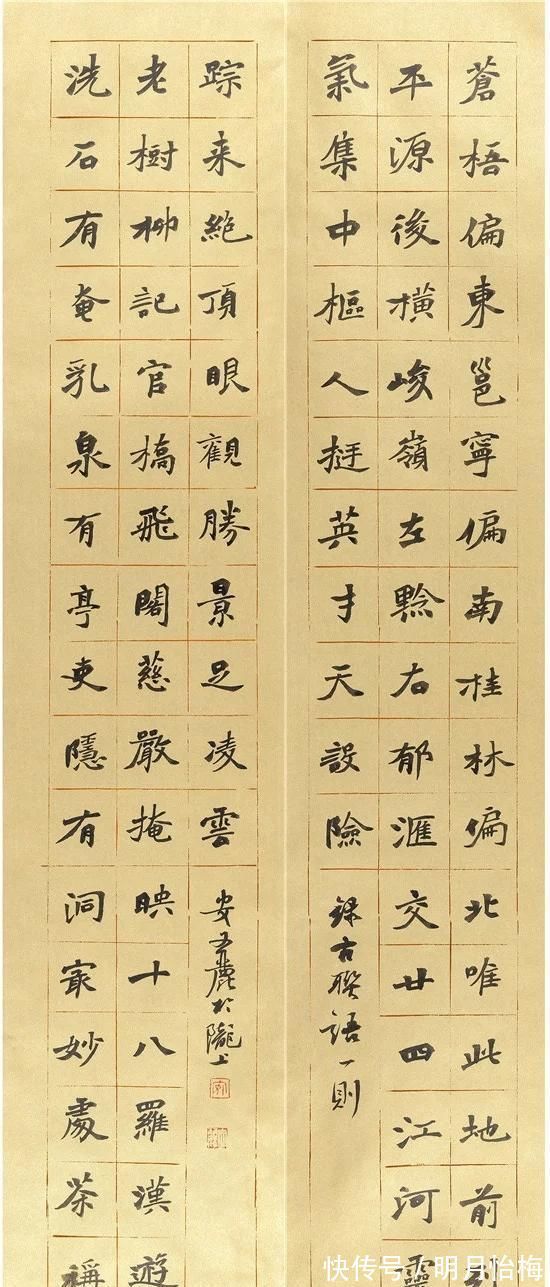 蒼梧偏東邕寧偏南桂林偏北唯此地前
平源後橫峻嶺左黔右郁滙交廿四江河靈
氣集中樞人挺英才天設險
錄古聯語一則
洗石有奄乳泉有亭吏隱有洞冣妙處茶稱
老樹柳記官橋飛閣慈嚴掩映十八羅漢遊
踪来絕頂眼觀勝景足凌雲
安文麗於隴上
快传号/明月怡梅